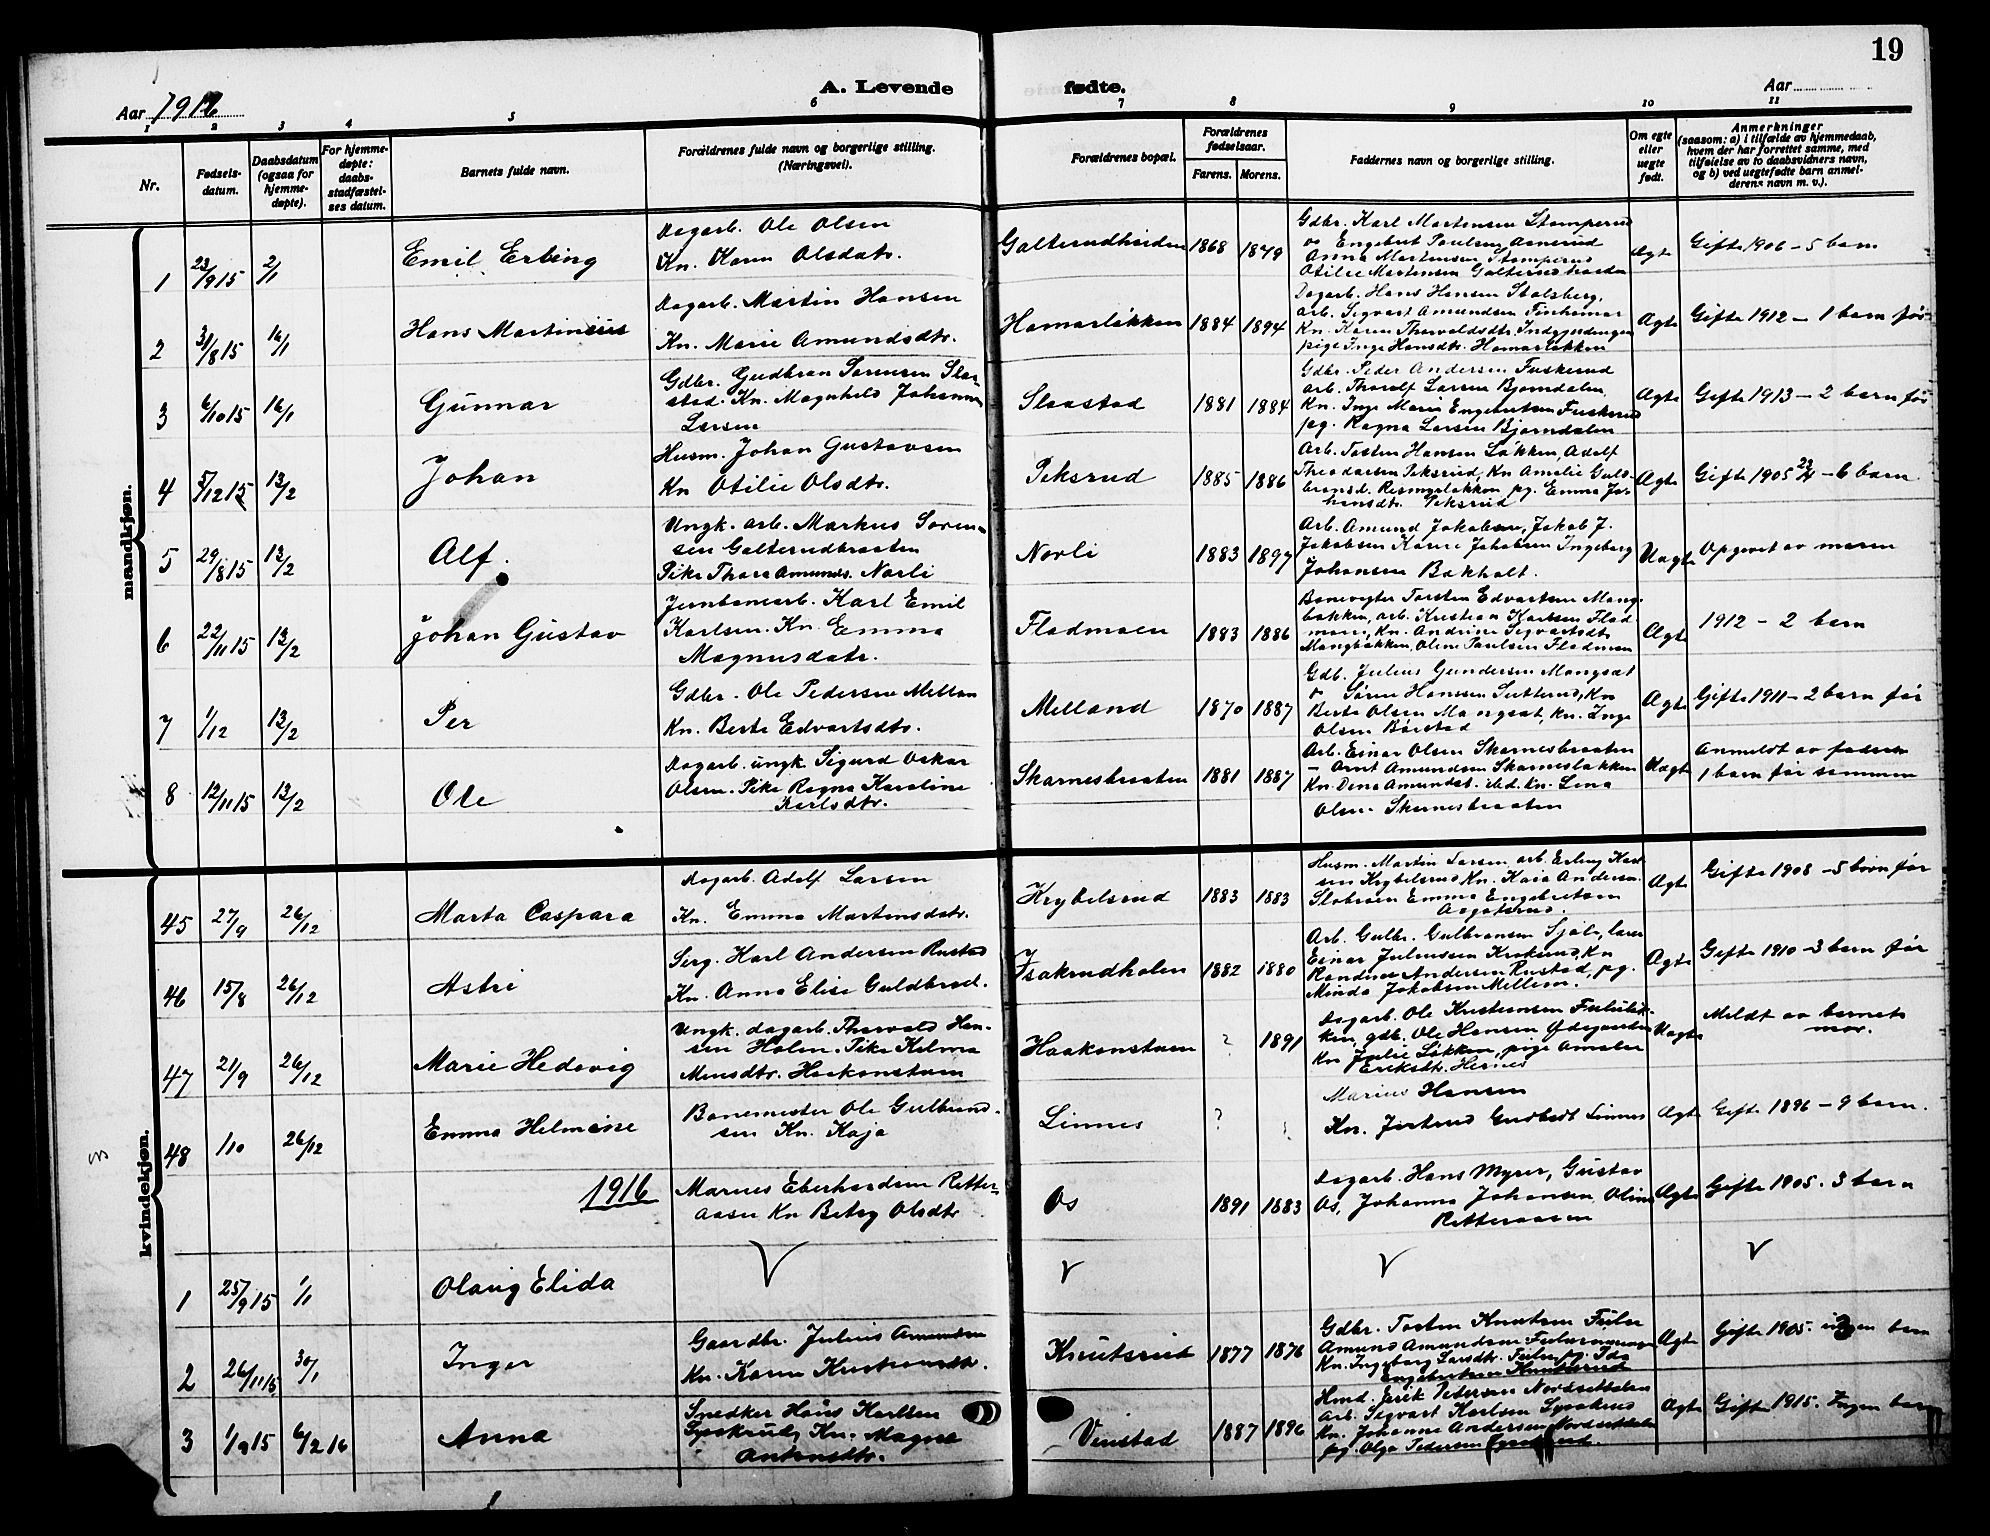 19
A. Levende fødte.
Aar 1916
Aar
1 2 3 4 5 6 7 8 9 10 11
Nr.
Fødsels-
datum.
Daabsdatum
(ogsaa for
hjemme-
døpte).
For hjemme-
døpte:
daabs-
stadfæstel-
ses datum.
Barnets fulde navn.
Forældrenes fulde navn og borgerlige stilling.
(Næringsvei).
Forældrenes bopæl.
Forældrenes
fødselsaar.
Farens. Morens.
Faddernes navn og borgerlige stilling.
Om egte
eller
uegte
født.
Anmerkninger
(saasom: a) i tilfælde av hjemmedaab,
hvem der har forrettet samme, med
tilføielse av to daabsvidners navn,
og b) ved uegtefødte barn anmel-
derens navn m. v.).
mandkjøn.
1 23/9 15 2/1 Emil Erling
Dagarb. Ole Olsen
Kn. Karen Olsdatr.
Galterudheiden 1868 1879
Gdbr. Karl Martensen Stomperud
og Engebret Paulsen Aanerud
Anna Martensen Stomperud
Otilie Martensen Galterudheiden
Ægte Gifte 1906 - 5 barn
2 31/8 15 16/1 Hans Martinius
Dagarb. Martin Hansen
Kn. Marie Amundsdtr.
Hamarløkken 1884 1894
Dagarb. Hans Hansen Stolsberg,
arb. Sigvart Amundsen
Kn. Karen Thorvaldsdtr.
pige Inga Hansdtr. Hamarløkken
Ægte Gifte 1912 - 1 barn før
3 6/10 15 16/1 Gunnar
Gdbr. Gudbran Sørensen Slaa-
stad. Kn. Magnhild Johanne
Larsen
Slaastad 1881 1884
Gdbr. Peder Andersen Fuskerud
arb. Thorolf Larsen Bjørndalen,
Kn. Inga Marie Engebretsen Fuskerud
pg. Ragna Larsen Bjørndalen
Ægte Gifte 1913 - 2 barn før
4 5/12 15 13/2 Johan
Husm. Johan Gustavsen
Kn Otilie Olsdtr.
Peksrud 1885 1886
Arb. Tosten Hansen Løkken, Adolf
Theodorsen Peksrud, Kn Amalie Guld-
bransd. pg. Emma Jo-
hansdtr. Peksrud
Ægte Gifte 1905 - 6 barn
5 29/8 15 13/2 Alf.
Ungk. arb. Markus Soren-
sen Galterudbraaten
Pike Thora Amunds. Norli
Norli 1883 1897
Arb. Amund Jakobsen, Jakob J.
Jakobsen Karen Jakobsen Ingeborg
Johansen Bakholt.
Uægte Opgivet av moren
6 22/11 15 13/2 Johan Gustav
Jernbanearb. Karl Emil
Karlsen. Kn. Emma
Magnusdatr.
Flodmoen 1883 1886
Banevogter Torsten Edvartsen Mang-
bakken, arb. Kristian Karlsen Flod-
moen, Kn. Andrine Sigvartsdtr
Mangbakken, Oline Paulsen Flodmoen
Ægte 1912 - 2 barn
7 1/12 13/2 Per
Gdbr. Ole Pedersen Millan
Kn. Berte Edvartsdtr.
Milland 1870 1887
Gdb. Julius Gundersen Mangset
Søren Hansen Sutterud, Kn
Berte Olsen Mangset, Kn. Inga
Olsen Børstad
Ægte Gifte 1911 - 2 barn før
8 12/11 15 13/2 Ole
Dagarb. ungk. Sigurd Oskar
Olsen. Pike Ragna Karoline
Karlsdtr.
Skarnesbraaten 1881 1887
Arb. Einar Olsen Skarnesbraaten
- Arnt Amundsen Skarnesløkken
Kn. Dena Amundsd. ibd. Kn. Lina
Olsen Skarnesbraaten
Uægte Anmeldt av faderen
1 barn før sammen
kvindekjøn.
45 27/9 26/12 Marta Caspara
Dagarb. Adolf Larsen
Kn. Emma Martinsdatr.
Krybelsrud 1883 1883
Husm. Martin Larsen arb. Erling Karl-
sen Krybelsrud Kn. Kaia Andersen
Emma Engebretsen
Ægte Gifte 1908 - 5 børn før
46 15/8 26/12 Astri
Serg. Karl Andersen Rustad
Kn. Anna Elise Guldbrad.
Isakrudholen 1882 1880
Arb. Gulbr. Gulbransen Sjøli, lærer
Einar Juliussen Krokrud, Kn
Randine Andersen Rustad, pg.
Minda Jakobsen Millem.
Ægte Gifte 1910 - 3 barn før
47 21/9 26/12 Marie Hedevig
Ungk. dagarb. Thorvald Han-
sen Holen. Pike Hilma
Monsdtr. Haakonstuen
Haakonstuen ? 1891
Dagarb. Ole Kristiansen
gdb. Ole Hansen Ødegaarden
Kn Julie Løkken, pige Amalie
Eriksdtr. Hernes
Uægte Meldt av barnets
mor.
48 1/10 26/12 Emma Helmine
Banemester Ole Gulbrand-
sen Kn. Kaja
Linnes ? ?
Marius Hansen
Kn. Jørtrud Gudbrdt Linnes
Ægte Gifte 1896 - 9 barn.
1916
Marius Eberhardsen Ritter-
aasen Kn Betsy Olsdtr
Os 1891 1883
Dagarb. Hans Myrer, Gustav
Os, Johanna Johansen, Oline
Ritteraasen
Ægte Gifte 1905. 3 barn
1 25/9 15 1/1 Olaug Elida
V V V V
2 26/11 15 30/1 Inger
Gaardbr. Julius Amundsen
Kn. Karen Kristiansdtr.
Knutsrud 1877 1876
Gdbr. Tosten Knutsen Fulu
Amund Amundsen
Kn. Ingeborg Larsdtr. Fulu, pg. Ida
Engebretsen Knutsrud
Ægte Gifte 1905. ingen barn
3 1/9 15 6/2 16 Anna
Snedker Hans Karlsen
Kn. Magna
Antonsdtr.
Vinstad 1887 1896
Hmd. Erik Petersen Nordsetdalen
Arb. Sigvart Karlsen
Kn. Johanna Andersen Nordsetdalen
pg. Olga Pedersen
Ægte Gifte 1915. Ingen barn